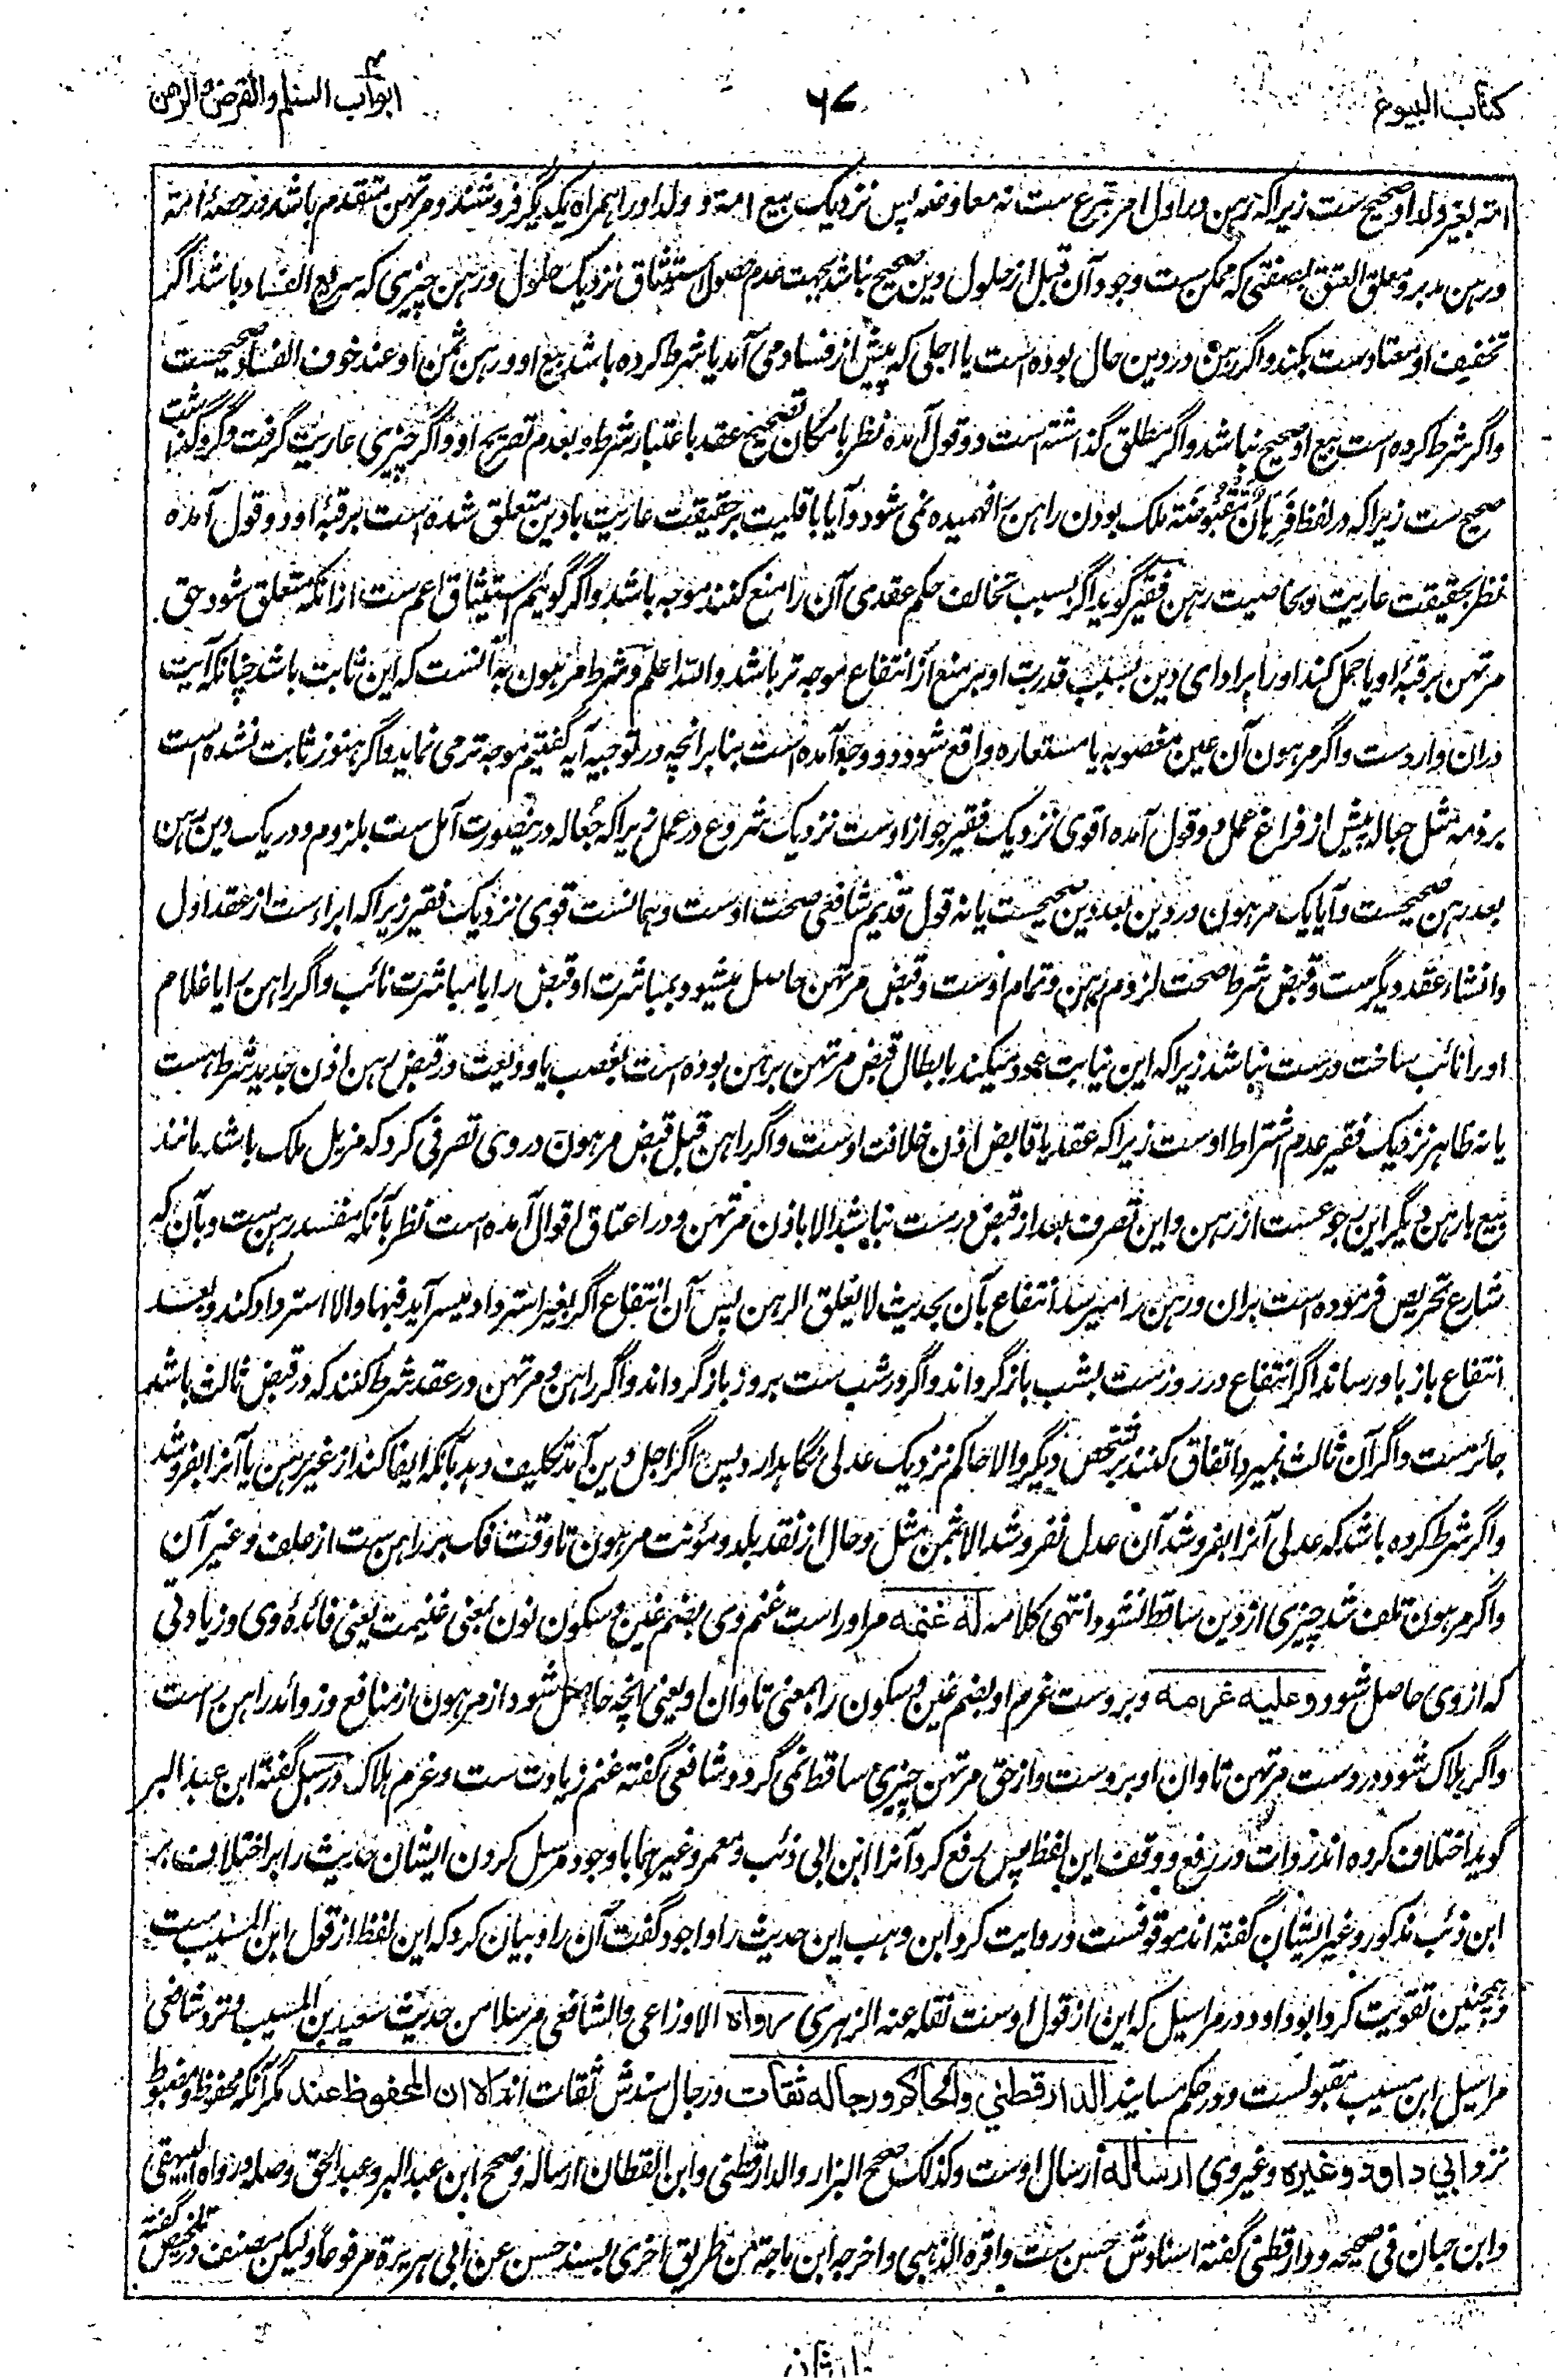 کتاب البیوع
۶۷
ابواب السلم والقرض والرهن
امته بغیر ولد او صحیح ست زیراکه رهن در اول امر تبرع ست نه معاوضه پس نزدیک بیع امة و ولد او را همراه یکدیگر فروشند و مرتهن متقدم باشد در حصهٔ امته
و رهن مدبر و معلق العتق بصفتی که ممکن ست وجود آن قبل از حلول دین صحیح نباشد بجهت عدم حصول استیثاق نزدیک حلول و رهن چیزی که سریع الفساد باشد اگر
تخفیف او معتادست بکند و اگر رهن در دین حال بوده است یا اجلی که پیش از فساد می آمد یا شرط کرده باشد بیع او و رهن ثمن او عند خوف الفساد صحیحست
و اگر شرط کرده است بیع او صحیح نباشد و اگر مطلق گذاشته است دو قول آمده نظر بامکان تصحیح عقد باعتبار شرط و بعدم تصریح او و اگر چیزی عاریت گرفت و گرو گذاشت
صحیح ست زیراکه در لفظ فَرِهَانٌ مَّقْبُوضَةٌ ملک بودن راهن را فهمیده نمی شود و آیا باقلیت بر حقیقت عاریت یا دین متعلق شده است برقبهٔ او دو قول آمده
نظر بحقیقت عاریت و بخاصیت رهن فقیر گوید اگر بسبب تخالف حکم عقدی آن را منع کنند موجه باشد و اگر گوئیم استیثاق اعم ست ازانکه متعلق شود حق
مرتهن برقبهٔ او یا حمل کند او را بر ادای دین بسبب قدرت او بر منع از انتفاع موجه تر باشد و الله اعلم و شرط مرهون به آنست که دین ثابت باشد چنانکه آیت
دران واردست و اگر مرهون آن عین مغصوبه یا مستعاره واقع شود دو وجه آمده است بنا بر انچه در توجیه آیه گفتیم موجه تر می نماید و اگر هنوز ثابت نشده است
بر ذمه مثل جعاله پیش از فراغ عمل دو قول آمده اقوی نزدیک فقیر جواز اوست نزدیک شروع در عمل زیراکه جعاله درینصورت آمل ست بلزوم و در یک دین رهن
بعد رهن صحیحست و آیا یک مرهون در دین بعد دین صحیحست یا نه قول قدیم شافعی صحت اوست و همانست قوی نزدیک فقیر زیراکه ابراء ست از عقد اول
و انشاء عقد دیگر ست و قبض شرط صحت لزوم رهن و تمام اوست و قبض مرتهن حاصل میشود بمباشرت او قبض را یا مباشرت نائب و اگر راهن را یا غلام
او را نائب ساخت درست نباشد زیراکه این نیابت عود میکند بابطال قبض مرتهن بر رهن بوده است بغصب یا ودیعت در قبض رهن اذن جدید شرط هست
یا نه ظاهر نزدیک فقیر عدم اشتراط اوست زیراکه عقد یا قابض اذن خلافت اوست و اگر راهن قبل قبض مرهون در وی تصرفی کرد که مزیل ملک باشد مانند
بیع یا رهن دیگر این رجوعست از رهن و این تصرف بعد از قبض درست نباشد الا باذن مرتهن و در اعتاق اقوال آمده است نظر بآنکه مفسد رهن ست و بآن که
شارع تحریص فرموده است بران و رهن را میرسد انتفاع بآن بحدیث لا یغلق الرهن پس آن انتفاع اگر بغیر استرداد میسر آید فبها و الا استرداد کند و بعد
انتفاع باز باو رساند اگر انتفاع در روزست بشب بازگرداند و اگر در شب ست بروز بازگرداند و اگر راهن و مرتهن در عقد شرط کنند که در قبض ثالث باشد
جائزست و اگر آن ثالث بمیرد اتفاق کنند بر شخص دیگر و الا حاکم نزدیک عدلی نگاهدارد پس اگر اجل دین آمد تکلیف دهد بآنکه ایفا کند از غیر رهن یا آنرا بفروشد
و اگر شرط کرده باشد که عدلی آنرا بفروشد آن عدل نفروشد الا بثمن مثل و حال از نقد بلد و مؤنت مرهون تا وقت فک بر راهن ست از علف و غیر آن
و اگر مرهون تلف شد چیزی از دین ساقط نشود انتهی کلامه له غنمه مر او راست غنم وی بضم غین و سکون نون بمعنی غنیمت یعنی فائدهٔ وی و زیادتی
که از وی حاصل شود و علیه غرمه و بر وست غرم او بضم غین و سکون را بمعنی تاوان او یعنی انچه حاصل شود از مرهون از منافع و زوائد راهن راست
و اگر هلاک شود در دست مرتهن تاوان او بر وست و از حق مرتهن چیزی ساقط نمی گردد و شافعی گفته غنم زیادت ست و غرم هلاک در سبل گفته ابن عبد البر
گوید اختلاف کرده اند روات در رفع و وقف این لفظ پس رفع کرد آنرا ابن ابی ذئب و معمر و غیرهما با وجود مرسل کردن ایشان حدیث را بر اختلاف بر
ابن ذئب مذکور و غیر ایشان گفته اند موقوفست و روایت کرد ابن وهب این حدیث را و اجود گفت آن را و بیان کرد که این لفظ از قول ابن المسیب ست
و همچنین تقویت کرد ابو داود در مراسیل که این از قول اوست نقله عنه الزهری رواه الاوزاعی و الشافعی مرسلا من حدیث سعید بن المسیب و نزد شافعی
مراسیل ابن مسیب مقبولست و در حکم مسانید الدارقطنی و الحاکم و رجاله ثقات و رجال سندش ثقات اند الا ان المحفوظ عند مگر آنکه محفوظ و مضبوط
نزد ابی داود و غیره و غیر وی ارساله ارسال اوست و کذلک صحح البزار و الدارقطنی و ابن القطان ارساله و صحح ابن عبد البر و عبد الحق وصله و رواه البیهقی
و ابن حبان فی صحیحه و دارقطنی گفته اسنادش حسن ست و اقره الذهبی و اخرجه ابن ماجة من طریق اخری بسند حسن عن ابی هریرة مرفوعا و لیکن مصنف در تلخیص گفته